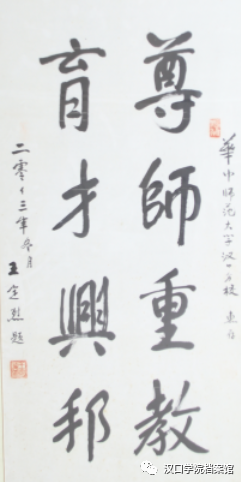 華中師范大学汉口分校 惠存
尊師重教
育才興邦
二零十三年冬月
王定烈 题
汉口学院档案馆